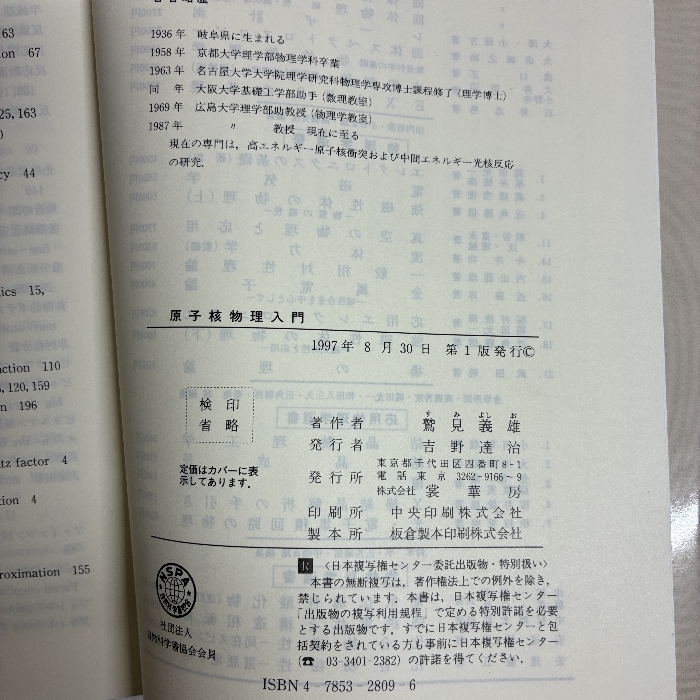 163
tion 67
25, 163
)
cy 44
ics 15,
action 110
, 120, 159
n 196
tz factor 4
tion 4
roximation 155
1936年 岐阜県に生まれる
1958年 京都大学理学部物理学科卒業
1963年 名古屋大学大学院理学研究科物理学専攻博士課程修了(理学博士)
同 年 大阪大学基礎工学部助手(数理教室)
1969年 広島大学理学部助教授(物理学教室)
1987年 〃 教授 現在に至る
現在の専門は,高エネルギー原子核衝突および中間エネルギー光核反応
の研究.
原子核物理入門
1997年 8月30日 第1版発行©
検印
省略
定価はカバーに表
示してあります.
すみ よし お
著作者 鷲見義雄
発行者 吉野達治
発行所
東京都千代田区四番町8-1
電話 東京 3262-9166~9
株式会社 裳華房
印刷所 中央印刷株式会社
製本所 板倉製本印刷株式会社
NSPA
社団法人
自然科学書協会会員
R 〈日本複写権センター委託出版物・特別扱い〉
本書の無断複写は,著作権法上での例外を除き,
禁じられています.本書は,日本複写権センター
「出版物の複写利用規程」で定める特別許諾を必要
とする出版物です.すでに日本複写権センターと包
括契約をされている方も事前に日本複写権センター
(☎ 03-3401-2382)の許諾を得てください.
ISBN 4-7853-2809-6